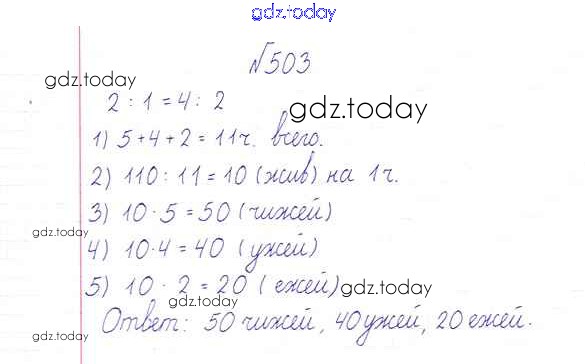 gdz.today
№503
gdz.today
2 : 1 = 4 : 2
gdz.today
1) 5+4+2=11ч. всего.
2) 110 : 11 = 10 (жив) на 1ч.
3) 10 · 5 = 50 (чижей)
gdz.today
4) 10·4 = 40 (ужей)
5) 10 · 2 = 20 (ежей)
gdz.today
gdz.today
Ответ: 50 чижей, 40 ужей, 20 ежей.
gdz.today